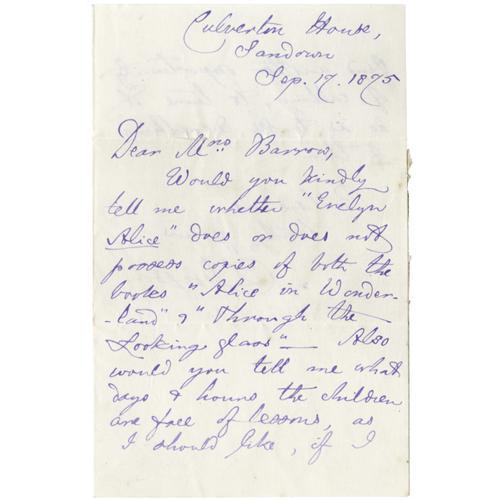 Culverton House,
Sandown
Sep. 17. 1875
Dear Mrs Barrow,
Would you kindly
tell me whether "Evelyn
Alice" does or does not
possess copies of both the
books "Alice in Wonder-
-land" & "Through the
Looking glass" — Also
would you tell me what
days & hours the children
are free of lessons, as
I should like, if I